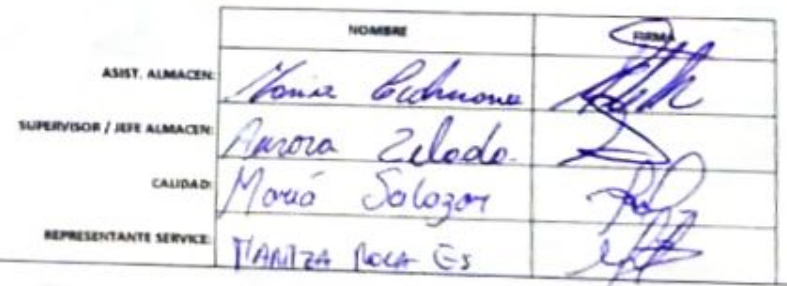 NOMBRE FIRMA
ASIST. ALMACEN:
SUPERVISOR / JEFE ALMACEN: Aurora Zelada
CALIDAD: Mariá Salazar
REPRESENTANTE SERVICE: MARITZA